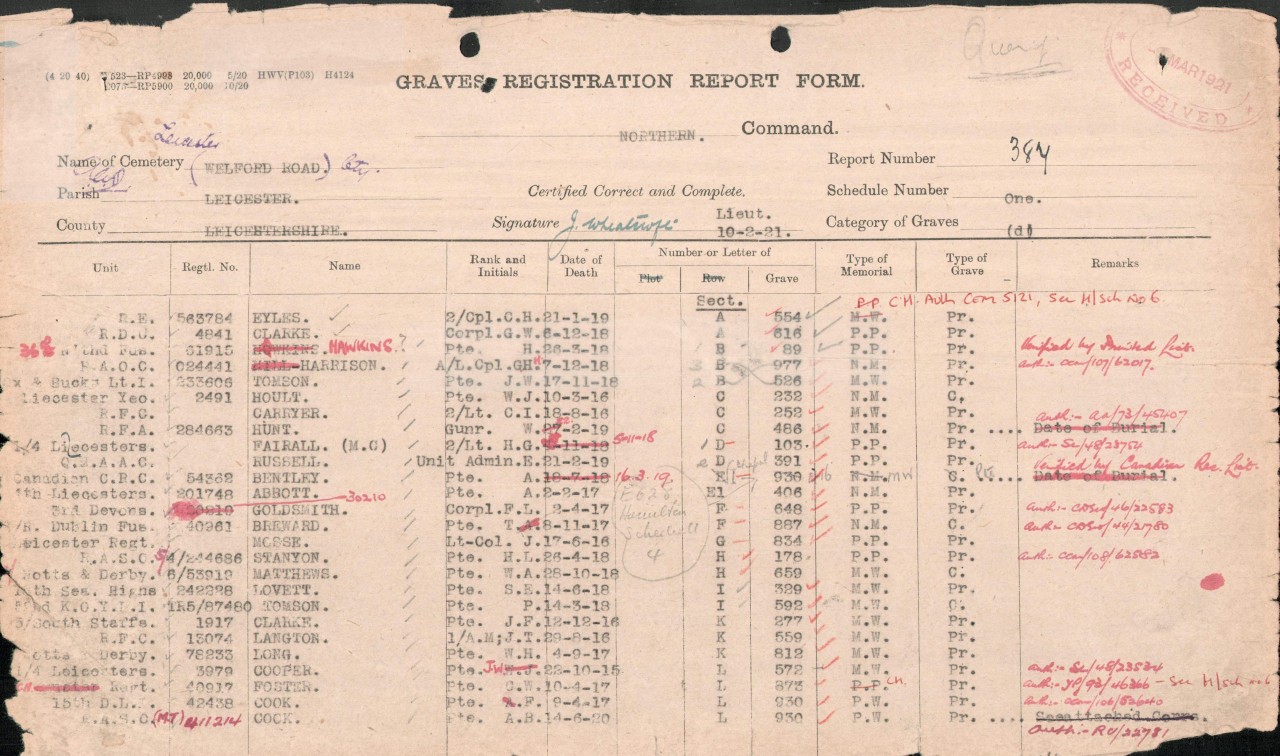 (4 20 40) W523—RP4993 20,000 5/20 HWV(P103) H4124
6073—RP5900 20,000 10/20
GRAVES REGISTRATION REPORT FORM.
MAR 1921
RECEIVED
NORTHERN. Command.
Leicester
Name of Cemetery (WELFORD ROAD.) Cty.
Report Number 384
Parish LEICESTER.
Certified Correct and Complete.
Schedule Number One.
County LEICESTERSHIRE.
Signature Lieut.
10-2-21.
Category of Graves (d)
Unit Regtl. No. Name Rank and Initials Date of Death Number or Letter of Plot Row Grave Type of Memorial Type of Grave Remarks
Sect. P.P. C.H. Auth Com 5121, See H/Sch No 6.
R.E. 563784 EYLES. 2/Cpl.C.H. 21-1-19 A 554 M.W. Pr.
R.D.C. 4841 CLARKE. Corpl.G.W. 6-12-18 A 616 P.P. Pr.
36th N'thd Fus. 61915 HAWKINS? Pte. H. 26-3-18 B 89 P.P. Pr.
R.A.O.C. 024441 HARRISON. A/L.Cpl.GH. 7-12-18 B 977 N.M. Pr. auth:- com/107/62017.
x & Bucks Lt.I. 233606 TOMSON. Pte. J.W. 17-11-18 B 526 M.W. Pr.
Liecester Yeo. 2491 HOULT. Pte. W.J. 10-3-16 C 232 N.M. C.
R.F.C. CARRYER. 2/Lt. C.I. 18-8-16 C 252 M.W. Pr. auth:- aa/73/45407
R.F.A. 284663 HUNT. Gunr. W. 27-2-19 C 486 N.M. Pr. .... Date of Burial.
1/4 Liecesters. FAIRALL (M.C) 2/Lt. H.G. 5-11-18 D 103 P.P. Pr. auth:- Se/48/23754
Q.M.A.A.C. RUSSELL. Unit Admin.E. 21-2-19 D 391 P.P. Pr. Verified by Canadian Rec. List.
Canadian C.R.C. 54362 BENTLEY. Pte. A. 18-7-18 16.3.19. E 930 N.M. MW C. Pte .... Date of Burial.
4th Liecesters. 201748 ABBOTT. Pte. A. 2-2-17 E1 406 N.M. Pr.
3rd Devons. 30210 GOLDSMITH. Corpl.F.L. 2-4-17 F 648 P.P. Pr.
/R. Dublin Fus. 40961 BREWARD. Pte. T.A. 8-11-17 F 887 N.M. C.
Leicester Regt. MOSSE. Lt-Col. J. 17-6-16 G 834 P.P. Pr.
R.A.S.C. S4/244686 STANYON. Pte. H.L. 26-4-18 H 178 P.P. Pr.
Notts & Derby. 6/53919 MATTHEWS. Pte. W.A. 28-10-18 H 659 M.W. C.
th Sea. Highs 242228 LOVETT. Pte. S.E. 14-6-18 I 329 M.W. Pr.
K.O.Y.L.I. TR5/87480 TOMSON. Pte. P. 14-3-18 I 592 M.W. C.
South Staffs. 1917 CLARKE. Pte. J.F. 12-12-16 K 277 M.W. Pr.
R.F.C. 13074 LANGTON. 1/A.M;J.T. 29-8-16 K 559 M.W. Pr.
Notts & Derby. 78233 LONG. Pte. W.H. 4-9-17 K 812 M.W. Pr.
1/4 Leicesters. 3979 COOPER. Pte. J.W. 22-10-15 L 572 M.W. Pr. auth:- Se/48/23534
Regt. 40917 FOSTER. Pte. C.W. 10-4-17 L 873 P.P. CH. Pr. - See H/Sch no 6
15th D.L.I. 42438 COOK. Pte. A.F. 9-4-17 L 930 P.P. Pr.
R.A.S.C (MT) COCK. Pte. A.B. 14-6-20 L 930 P.W. Pr. ....
Auth:- RO/22781